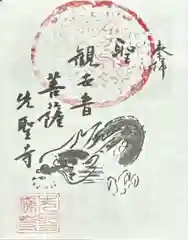 奉拝
聖
観世音
菩薩
先聖寺